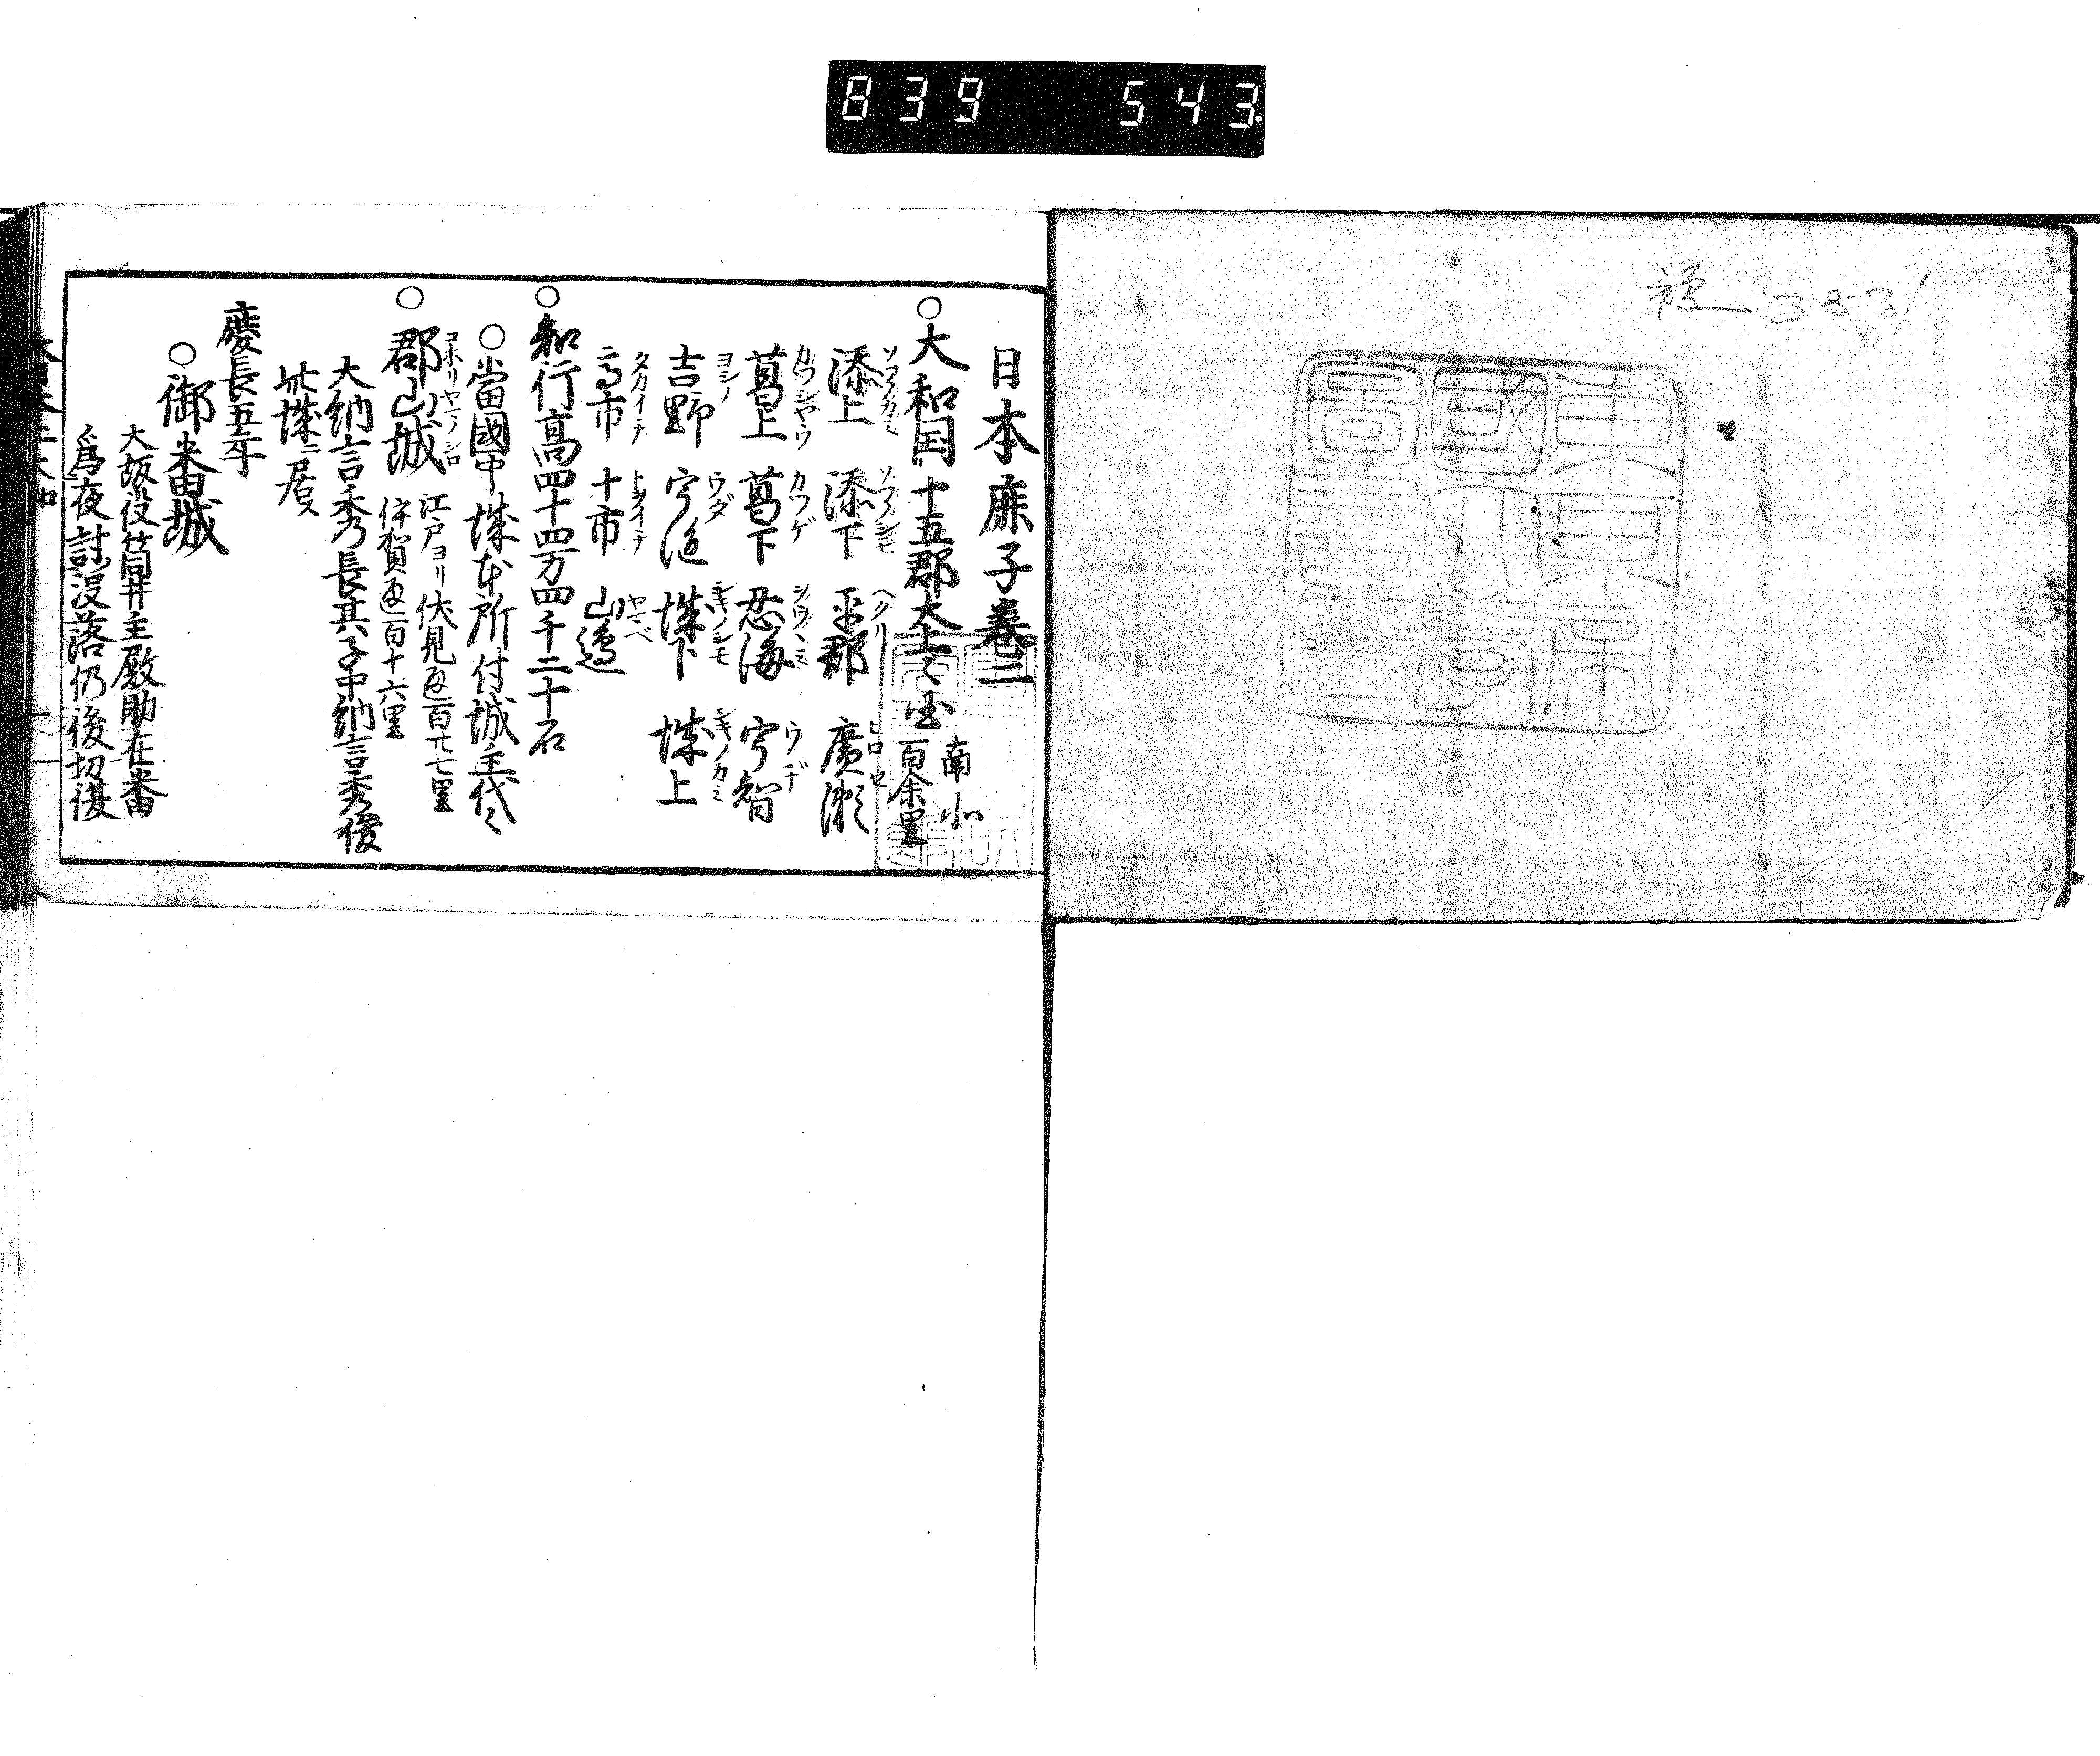 839 543
日本鹿子巻三
○大和国十五郡大上々国 南北百余里
添上 添下 平郡 廣瀬
ソフノカミ ソフノシモ ヘグリ ヒロセ
葛上 葛下 忍海 宇智
カツシヤウ カツゲ シノブノミ ウヂ
吉野 宇陀 城下 城上
ヨシノ ウダ シキノシモ シキノカミ
高市 十市 山邉
タカイチ トヲイチ ヤマベ
○知行高四十四万四千二十石
○當國中城本所付城主代々
○郡山城 江戸ヨリ伏見通百廿七里
コホリヤマノシロ
伊賀通百十六里
大納言秀長其子中納言秀俊
此城ニ居ス
慶長五年
○御番城
大坂役筒井主殿助在番
為夜討没落仍後切腹
東京帝國大學圖書